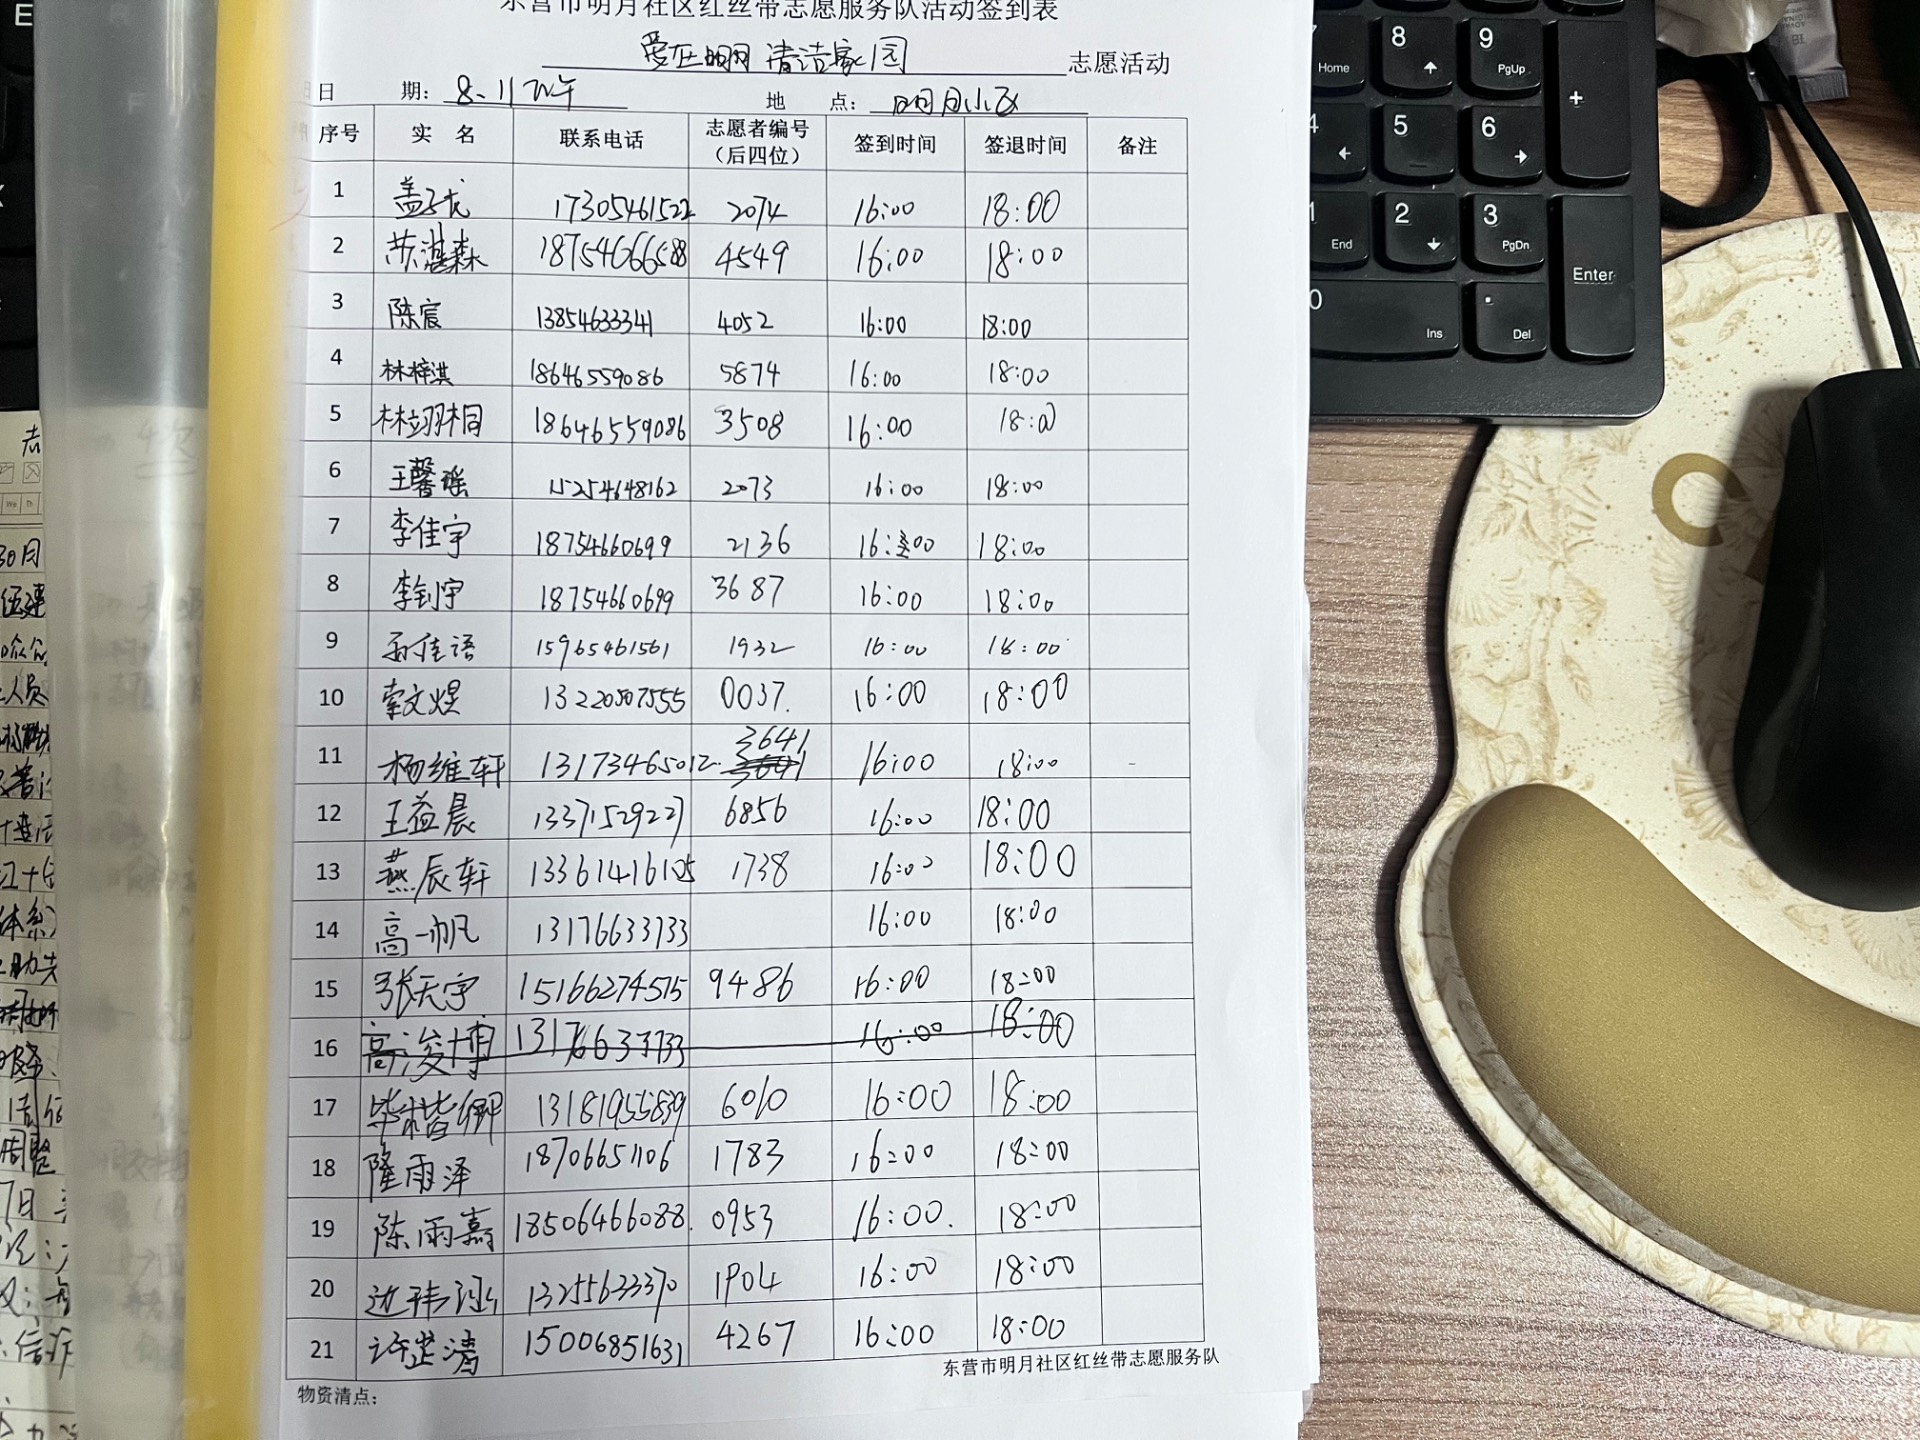 东营市明月社区红丝带志愿服务队活动签到表
爱在明月 清洁家园 志愿活动
日 期: 8.11 下午 地 点: 明月小区
序号 实 名 联系电话 志愿者编号(后四位) 签到时间 签退时间 备注
1 盖子龙 17305461522 2074 16:00 18:00
2 苏湛森 18754666588 4549 16:00 18:00
3 陈宸 13854633341 4052 16:00 18:00
4 林梓淇 18646559086 5874 16:00 18:00
5 林翊桐 18646559086 3508 16:00 18:00
6 王馨瑶 15254648162 2073 16:00 18:00
7 李佳宇 18754660699 2136 16:00 18:00
8 李钊宇 18754660699 3687 16:00 18:00
9 孟佳语 15965461561 1932 16:00 18:00
10 索文煜 13220507555 0037. 16:00 18:00
11 杨维轩 13173465012. 3641 3641 16:00 18:00 -
12 王益晨 13371529227 6856 16:00 18:00
13 燕辰轩 13361416105 1738 16:00 18:00
14 高一帆 13176633733 16:00 18:00
15 张天宇 15166274515 9486 16:00 18:00
16 高浚博 13176633733 16:00 18:00
17 毕楷卿 13181955839 6010 16:00 18:00
18 隆雨泽 18706651106 1783 16:00 18:00
19 陈雨嘉 18506466088. 0953 16:00. 18:00
20 边玮泓 13255633370 1904 16:00 18:00
21 许芷清 15006851631 4267 16:00 18:00
东营市明月社区红丝带志愿服务队
物资清点:
7 Home
8
9 PgUp
+
4
5
6
1 End
2
3 PgDn
Enter
0 Ins
. Del